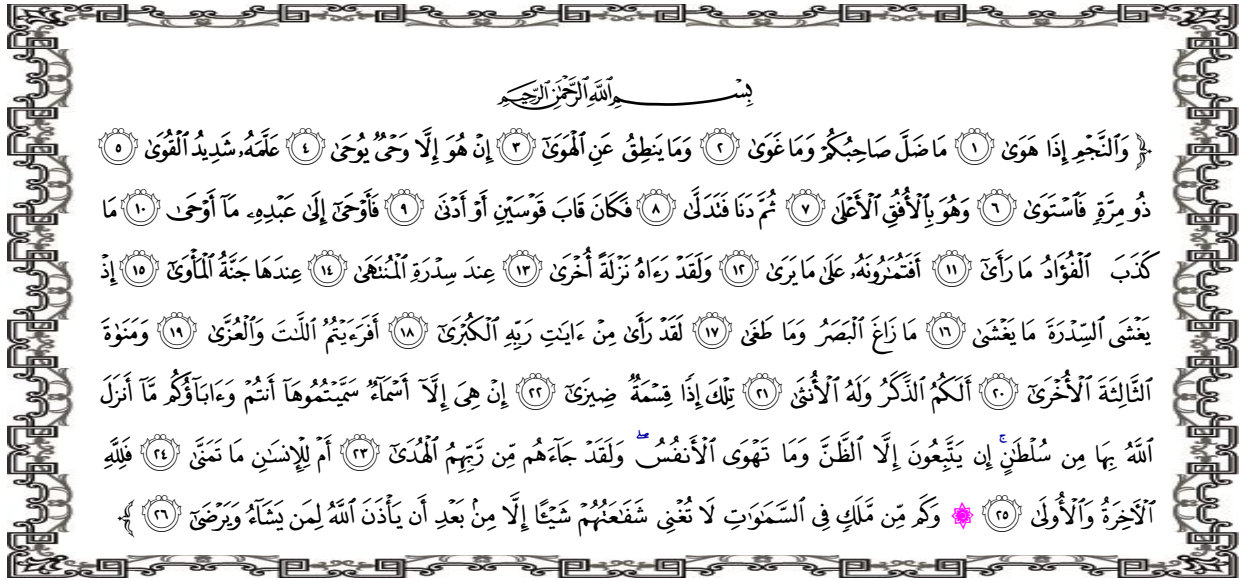 بِسْمِ ٱللَّهِ ٱلرَّحْمَٰنِ ٱلرَّحِيمِ
﴿ وَٱلنَّجْمِ إِذَا هَوَىٰ ١ مَا ضَلَّ صَاحِبُكُمْ وَمَا غَوَىٰ ٢ وَمَا يَنطِقُ عَنِ ٱلْهَوَىٰٓ ٣ إِنْ هُوَ إِلَّا وَحْىٌ يُوحَىٰ ٤ عَلَّمَهُۥ شَدِيدُ ٱلْقُوَىٰ ٥
ذُو مِرَّةٍ فَٱسْتَوَىٰ ٦ وَهُوَ بِٱلْأُفُقِ ٱلْأَعْلَىٰ ٧ ثُمَّ دَنَا فَتَدَلَّىٰ ٨ فَكَانَ قَابَ قَوْسَيْنِ أَوْ أَدْنَىٰ ٩ فَأَوْحَىٰٓ إِلَىٰ عَبْدِهِۦ مَآ أَوْحَىٰ ١٠ مَا
كَذَبَ ٱلْفُؤَادُ مَا رَأَىٰٓ ١١ أَفَتُمَٰرُونَهُۥ عَلَىٰ مَا يَرَىٰ ١٢ وَلَقَدْ رَءَاهُ نَزْلَةً أُخْرَىٰ ١٣ عِندَ سِدْرَةِ ٱلْمُنتَهَىٰ ١٤ عِندَهَا جَنَّةُ ٱلْمَأْوَىٰٓ ١٥ إِذْ
يَغْشَى ٱلسِّدْرَةَ مَا يَغْشَىٰ ١٦ مَا زَاغَ ٱلْبَصَرُ وَمَا طَغَىٰ ١٧ لَقَدْ رَأَىٰ مِنْ ءَايَٰتِ رَبِّهِ ٱلْكُبْرَىٰٓ ١٨ أَفَرَءَيْتُمُ ٱللَّٰتَ وَٱلْعُزَّىٰ ١٩ وَمَنَوٰةَ
ٱلثَّالِثَةَ ٱلْأُخْرَىٰٓ ٢٠ أَلَكُمُ ٱلذَّكَرُ وَلَهُ ٱلْأُنثَىٰ ٢١ تِلْكَ إِذًا قِسْمَةٌ ضِيزَىٰٓ ٢٢ إِنْ هِىَ إِلَّآ أَسْمَآءٌ سَمَّيْتُمُوهَآ أَنتُمْ وَءَابَآؤُكُم مَّآ أَنزَلَ
ٱللَّهُ بِهَا مِن سُلْطَٰنٍ ۚ إِن يَتَّبِعُونَ إِلَّا ٱلظَّنَّ وَمَا تَهْوَى ٱلْأَنفُسُ ۖ وَلَقَدْ جَآءَهُم مِّن رَّبِّهِمُ ٱلْهُدَىٰٓ ٢٣ أَمْ لِلْإِنسَٰنِ مَا تَمَنَّىٰ ٢٤ فَلِلَّهِ
ٱلْءَاخِرَةُ وَٱلْأُولَىٰ ٢٥ ۞ وَكَم مِّن مَّلَكٍ فِى ٱلسَّمَٰوَٰتِ لَا تُغْنِى شَفَٰعَتُهُمْ شَيْـًٔا إِلَّا مِنۢ بَعْدِ أَن يَأْذَنَ ٱللَّهُ لِمَن يَشَآءُ وَيَرْضَىٰٓ ٢٦ ﴾